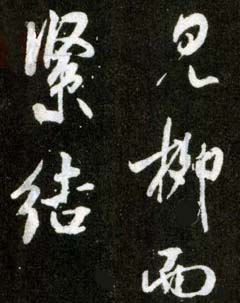 見柳而
緊結